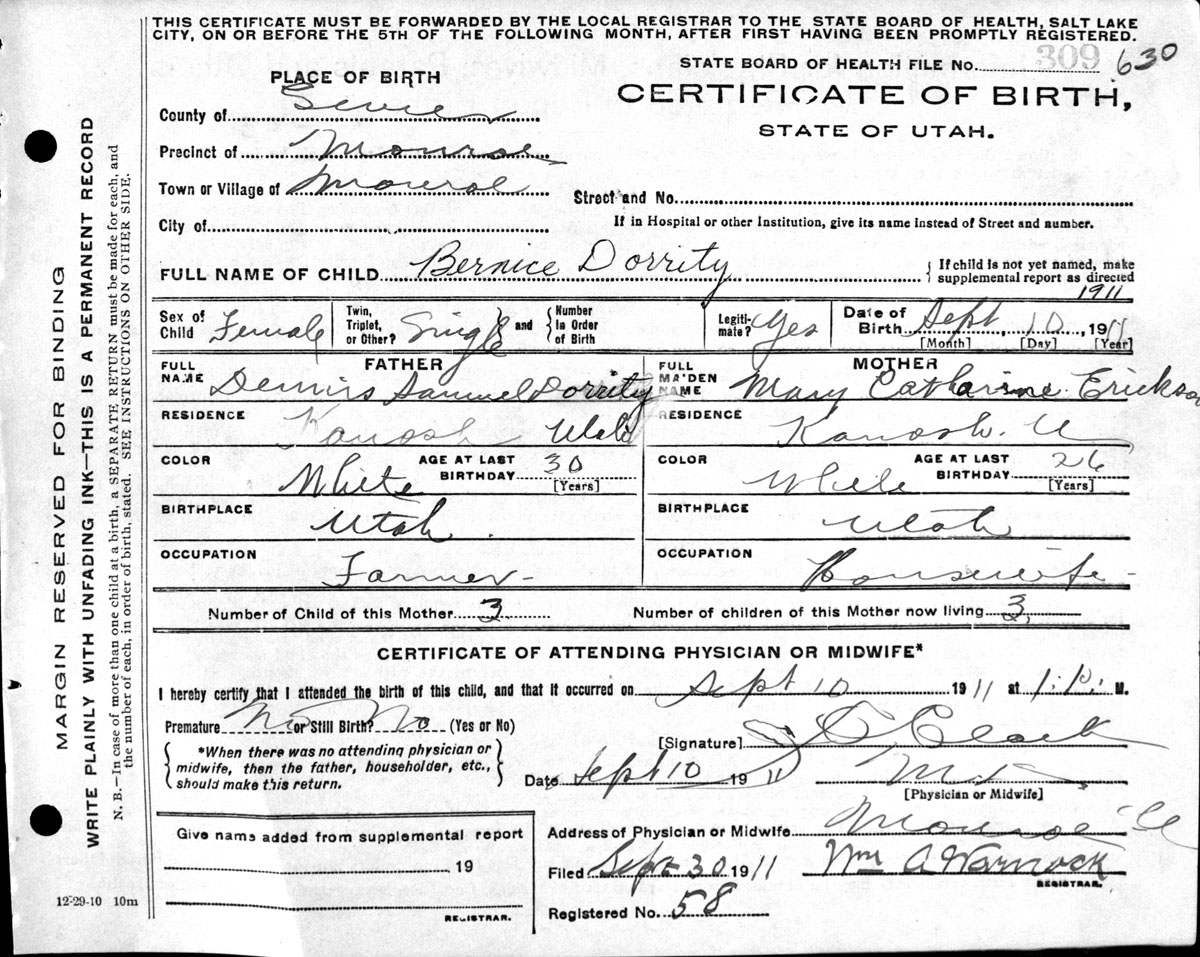 THIS CERTIFICATE MUST BE FORWARDED BY THE LOCAL REGISTRAR TO THE STATE BOARD OF HEALTH, SALT LAKE
CITY, ON OR BEFORE THE 5TH OF THE FOLLOWING MONTH, AFTER FIRST HAVING BEEN PROMPTLY REGISTERED.
STATE BOARD OF HEALTH FILE No. 309 630
PLACE OF BIRTH
CERTIFICATE OF BIRTH,
STATE OF UTAH.
County of Sevier
Precinct of Monroe
Town or Village of Monroe
Street and No.
City of
If in Hospital or other Institution, give its name instead of Street and number.
FULL NAME OF CHILD Bernice Dorrity
{ If child is not yet named, make
supplemental report as directed
1911
Sex of Child Female
Twin, Triplet, or Other? Single and { Number in Order of Birth
Legiti-mate? Yes
Date of Birth Sept 10, 1911
[Month] [Day] [Year]
FATHER
FULL NAME Dennis Samuel Dorrity
MOTHER
FULL MAIDEN NAME Mary Catharine Erickson
RESIDENCE Kanosh Utah
RESIDENCE Kanosh. U
COLOR White AGE AT LAST BIRTHDAY 30 [Years]
COLOR White AGE AT LAST BIRTHDAY 26 [Years]
BIRTHPLACE Utah
BIRTHPLACE Utah
OCCUPATION Farmer
OCCUPATION Housewife
Number of Child of this Mother 3 Number of children of this Mother now living 3
CERTIFICATE OF ATTENDING PHYSICIAN OR MIDWIFE*
I hereby certify that I attended the birth of this child, and that it occurred on Sept 10 1911 at 1. P. M.
Premature No or Still Birth? No (Yes or No)
{ *When there was no attending physician or
midwife, then the father, householder, etc.,
should make this return. }
[Signature] Clark
Date Sept 10 1911 M D
[Physician or Midwife]
Give name added from supplemental report
19
REGISTRAR.
Address of Physician or Midwife Monroe U
Filed Sept 30 1911 Wm A Warnock
REGISTRAR.
Registered No. 58
12-29-10 10m
MARGIN RESERVED FOR BINDING
WRITE PLAINLY WITH UNFADING INK—THIS IS A PERMANENT RECORD
N. B.—In case of more than one child at a birth, a SEPARATE RETURN must be made for each, and
the number of each, in order of birth, stated. SEE INSTRUCTIONS ON OTHER SIDE.